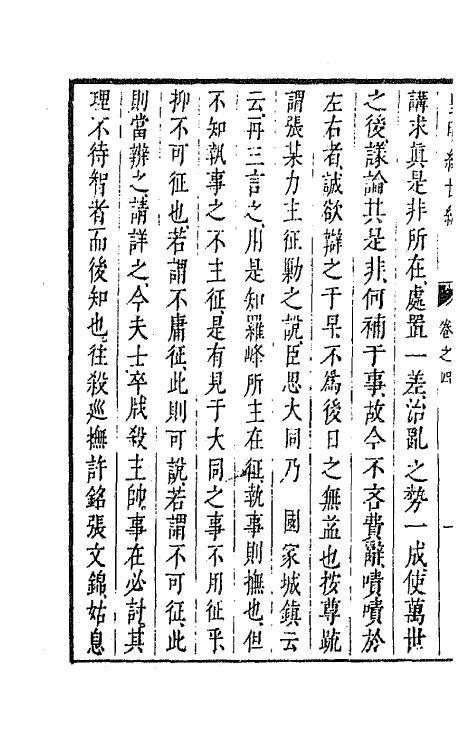 講求眞是非所在處置一差治亂之勢一成使萬世
之後議論其是非何補于事故今不吝費辭嘖嘖於
左右者誠欲辯之于早不爲後日之無益也按尊䟽
謂張某力主征勦之說臣思大同乃 國家城鎮云
云再三言之用是知羅峰所主在征執事則撫也但
不知執事之不主征是有見于大同之事不用征乎
抑不可征也若謂不庸征此則可說若謂不可征此
則當辨之請詳之今夫士卒戕殺主帥事在必討其
理不待智者而後知也往殺巡撫許銘張文錦姑息